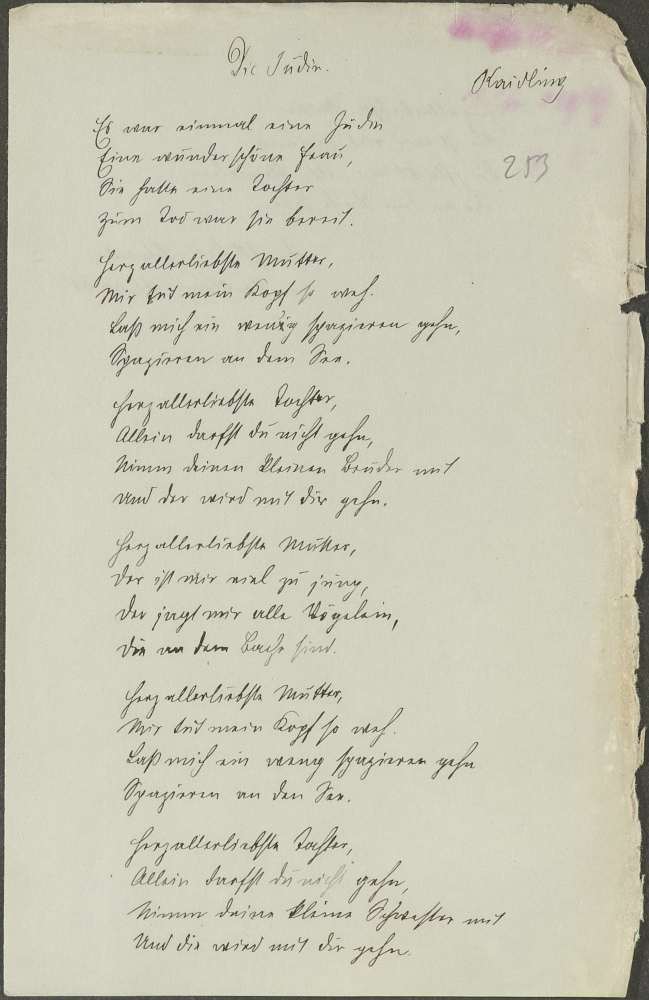 Die Jüdin.
Kaidling
253
Es war einmal eine Jüdin
Eine wunderschöne Frau,
Sie hatte eine Tochter
Zum Tod war sie bereit.
Herzallerliebste Mutter,
Mir tut mein Kopf so weh.
Laß mich ein wenig spazieren gehn,
Spazieren an dem See.
Herzallerliebste Tochter,
Allein darfst du nicht gehn,
Nimm deinen kleinen Bruder mit
Und der wird mit dir gehn.
Herzallerliebste Mutter,
Der ist mir viel zu jung,
Der jagt mir alle Vögelein,
Die an dem Bache sind.
Herzallerliebste Mutter,
Mir tut mein Kopf so weh.
Laß mich ein weng spazieren gehn
Spazieren an den See.
Herzallerliebste Tochter,
Allein darfst du nicht gehn,
Nimm deine kleine Schwester mit
Und die wird mit dir gehn.